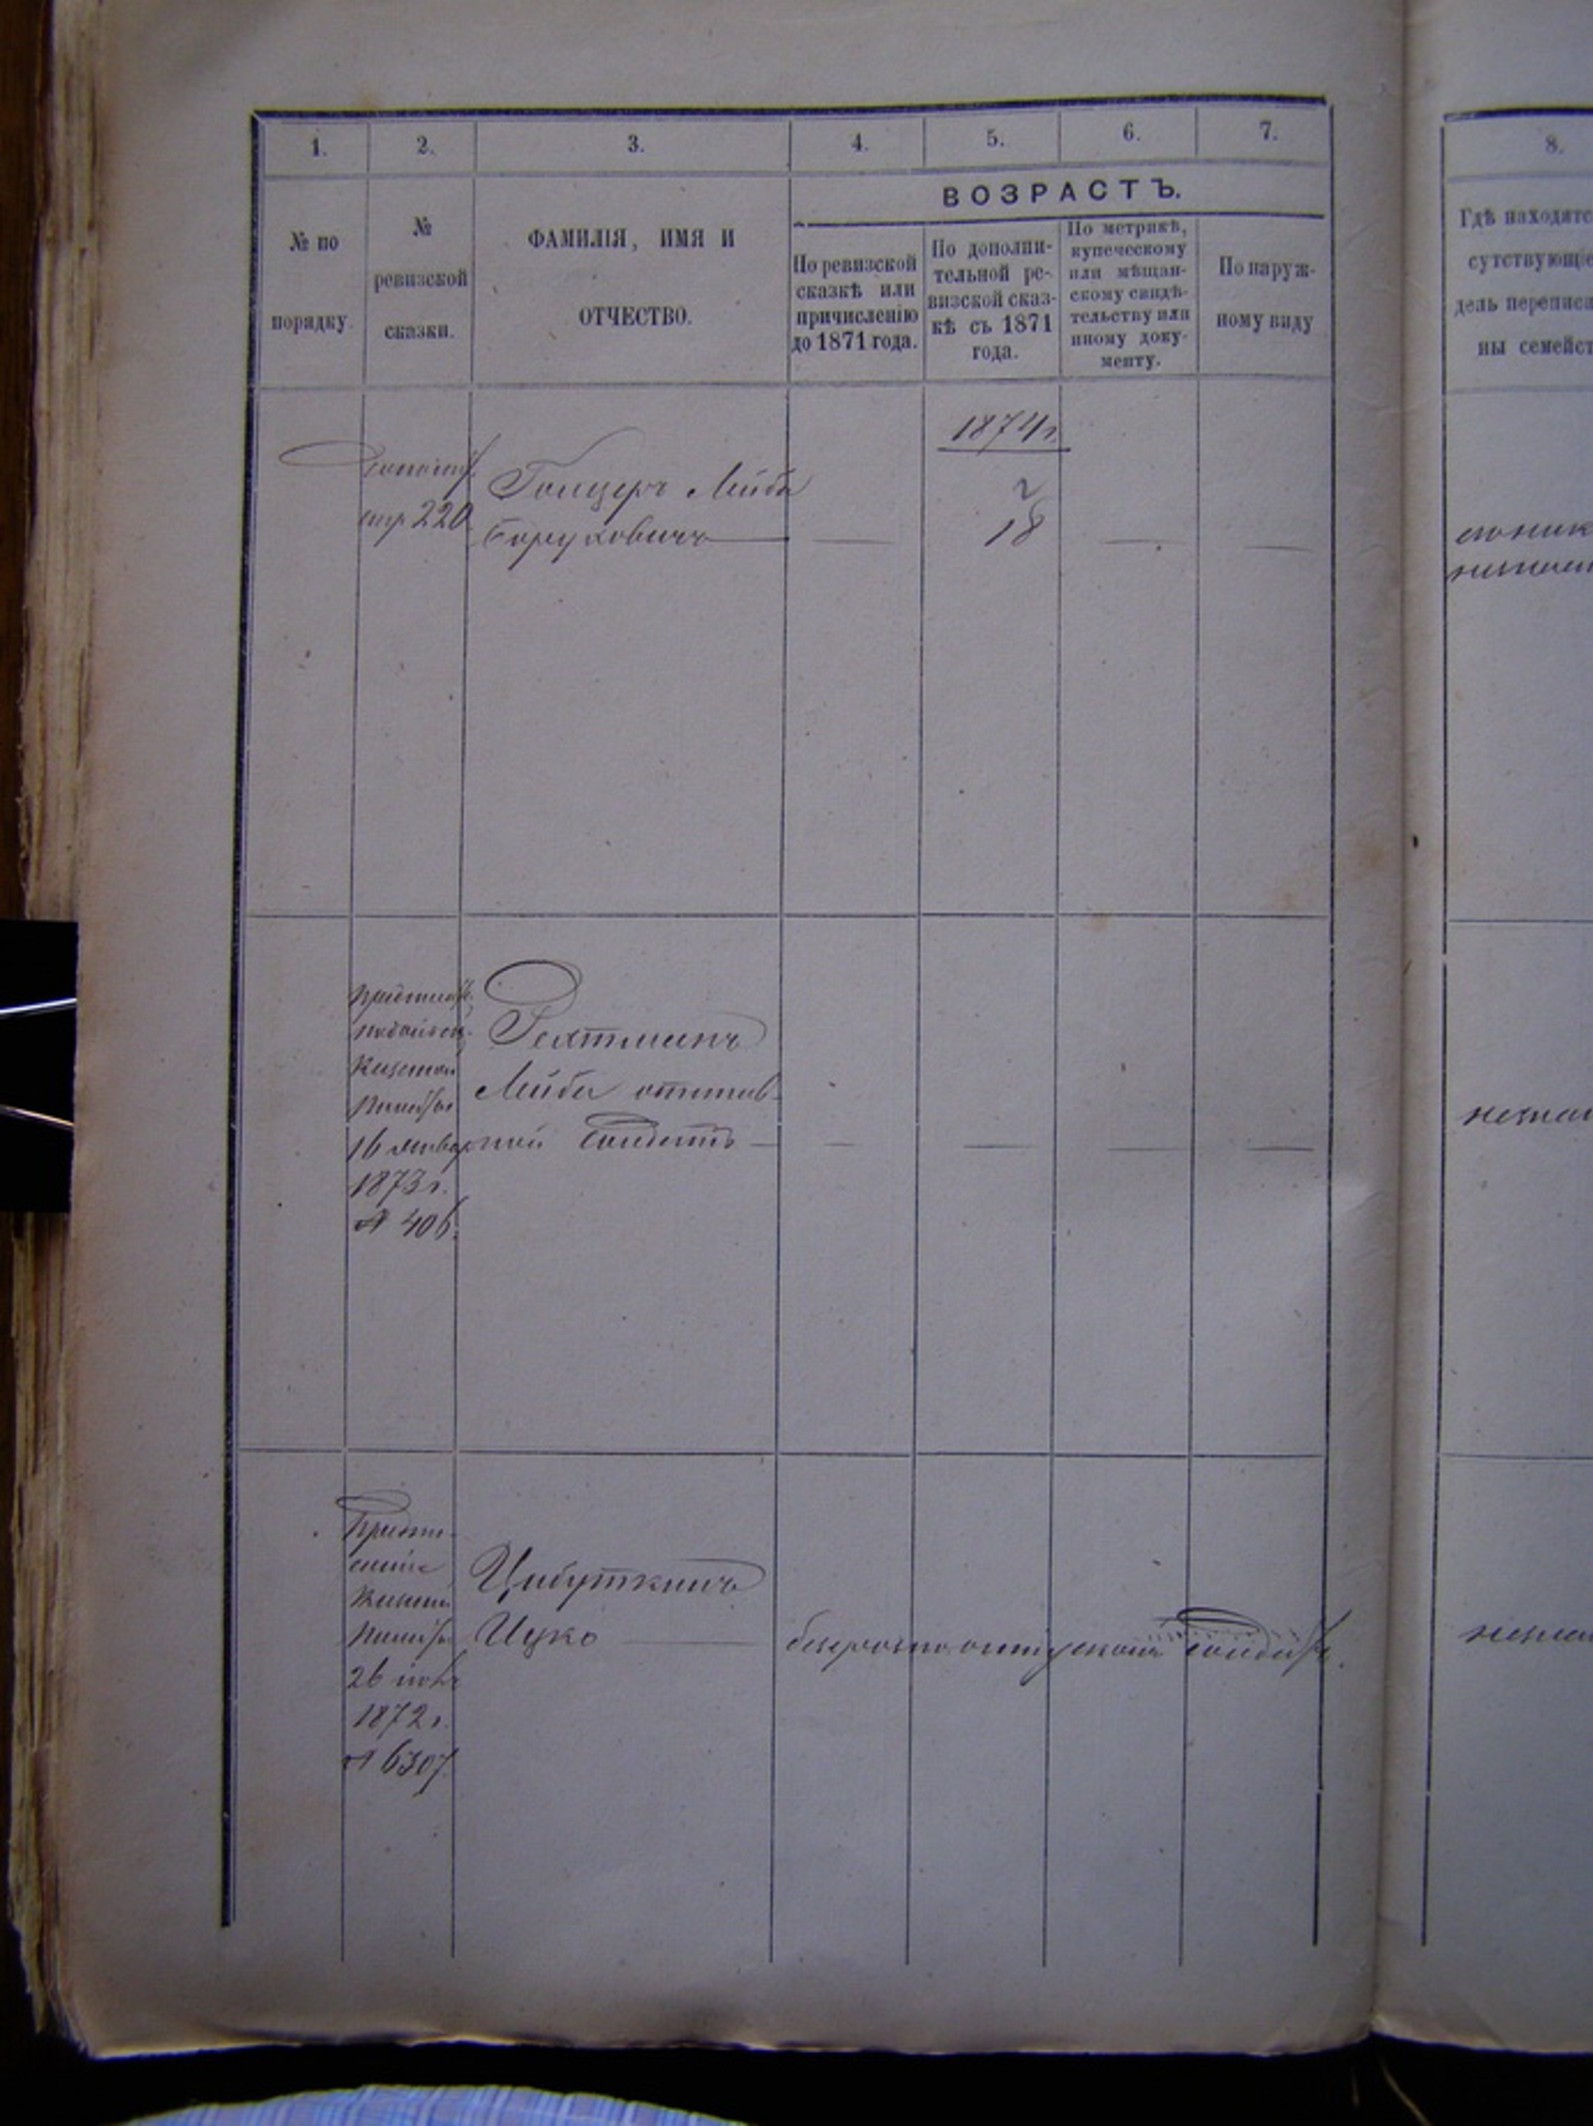 1. 2. 3. 4. 5. 6. 7.
№ по порядку.
№ ревизской сказки.
ФАМИЛІЯ, ИМЯ И
ОТЧЕСТВО.
ВОЗРАСТЪ.
По ревизской
сказкѣ или
причисленію
до 1871 года.
По дополни-
тельной ре-
визской сказ-
кѣ съ 1871
года.
По метрикѣ,
купеческому
или мѣщан-
скому свидѣ-
тельству или
иному доку-
менту.
По наруж-
ному виду
8.
Гдѣ находятс
сутствующіе
дѣль переписи
ны семейст
1874 г.
стр 220
Лейба
Боруховичъ
2
18
16 января
1873 г.
№ 406.
Рехтманъ
Лейба отстав-
ной солдатъ
Предпи-
саніе
Казенной
Палаты
1872 г.
№ 6307.
Цибуткинъ
Ицко
безсрочно отпускной солдатъ.